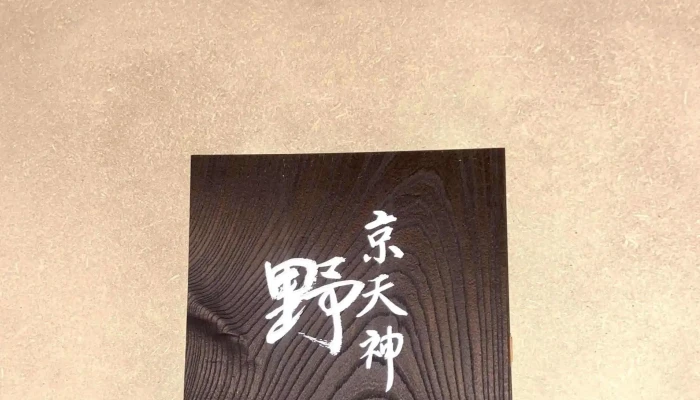 京天神
野